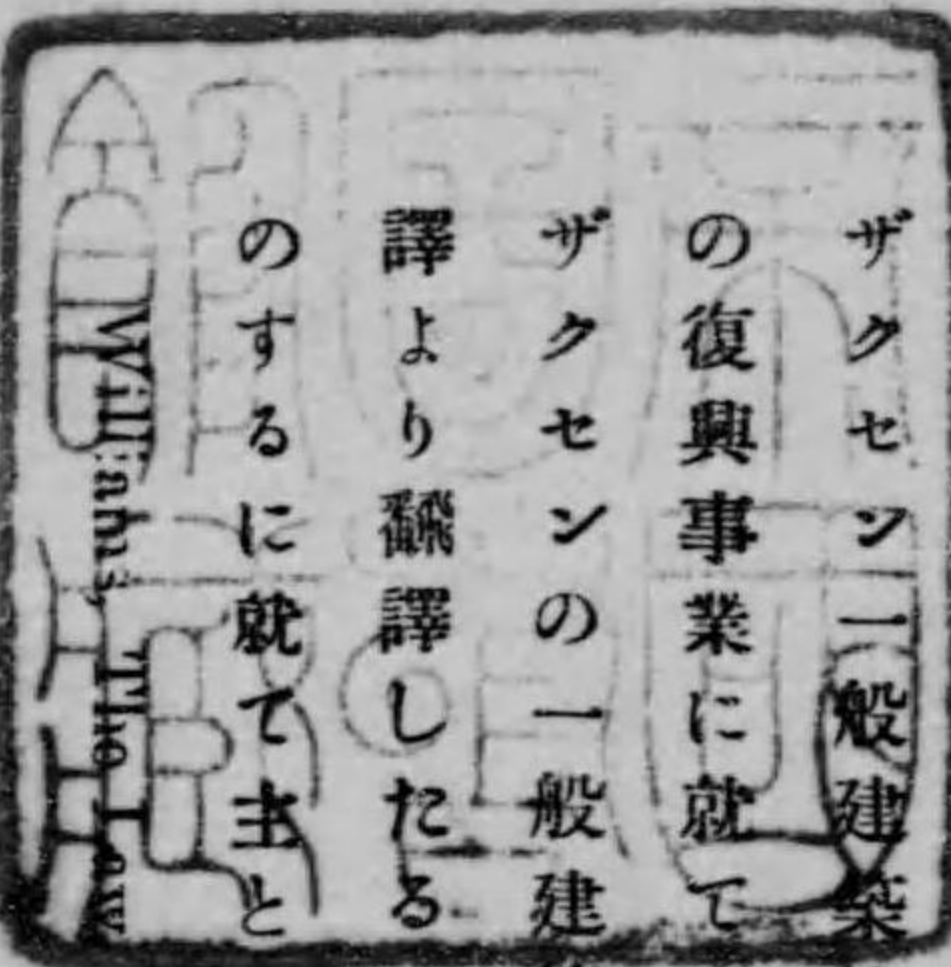 ザクセン一般建築
の復興事業に就て
ザクセンの一般建
譯より飜譯したる
のするに就て主と
Williams, The Law